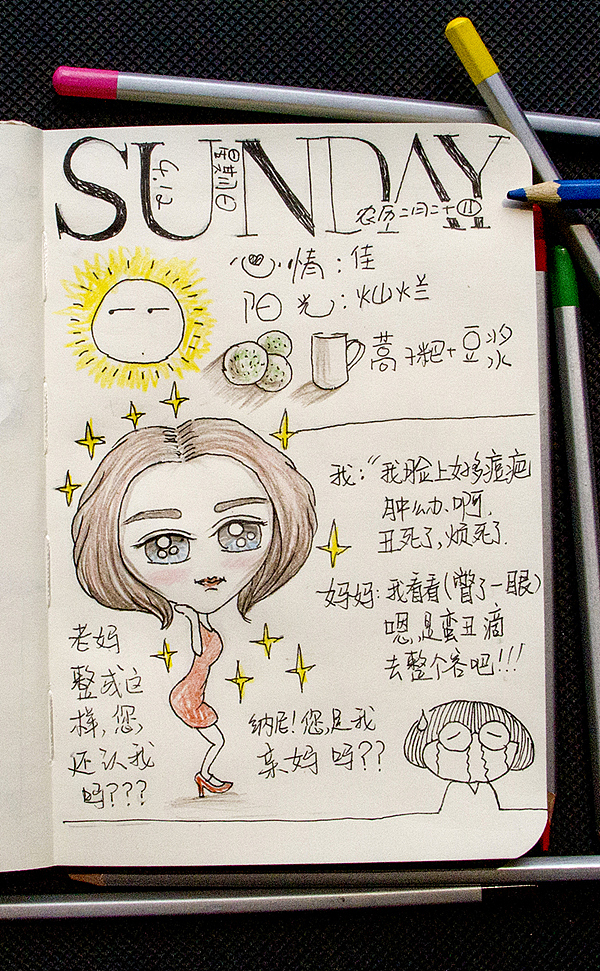 SUNDAY
4.12
星期日
农历二月二十四
心情：佳
阳光：灿烂
蒿子粑+豆浆
我："我脸上好多痘疤
肿么办啊，
丑死了，烦死了.
妈妈：我看看(瞥了一眼)
嗯，是蛮丑滴
去整个容吧!!!
老妈
整成这
样，您，
还认我
吗???
纳尼!您，是我
亲妈吗??